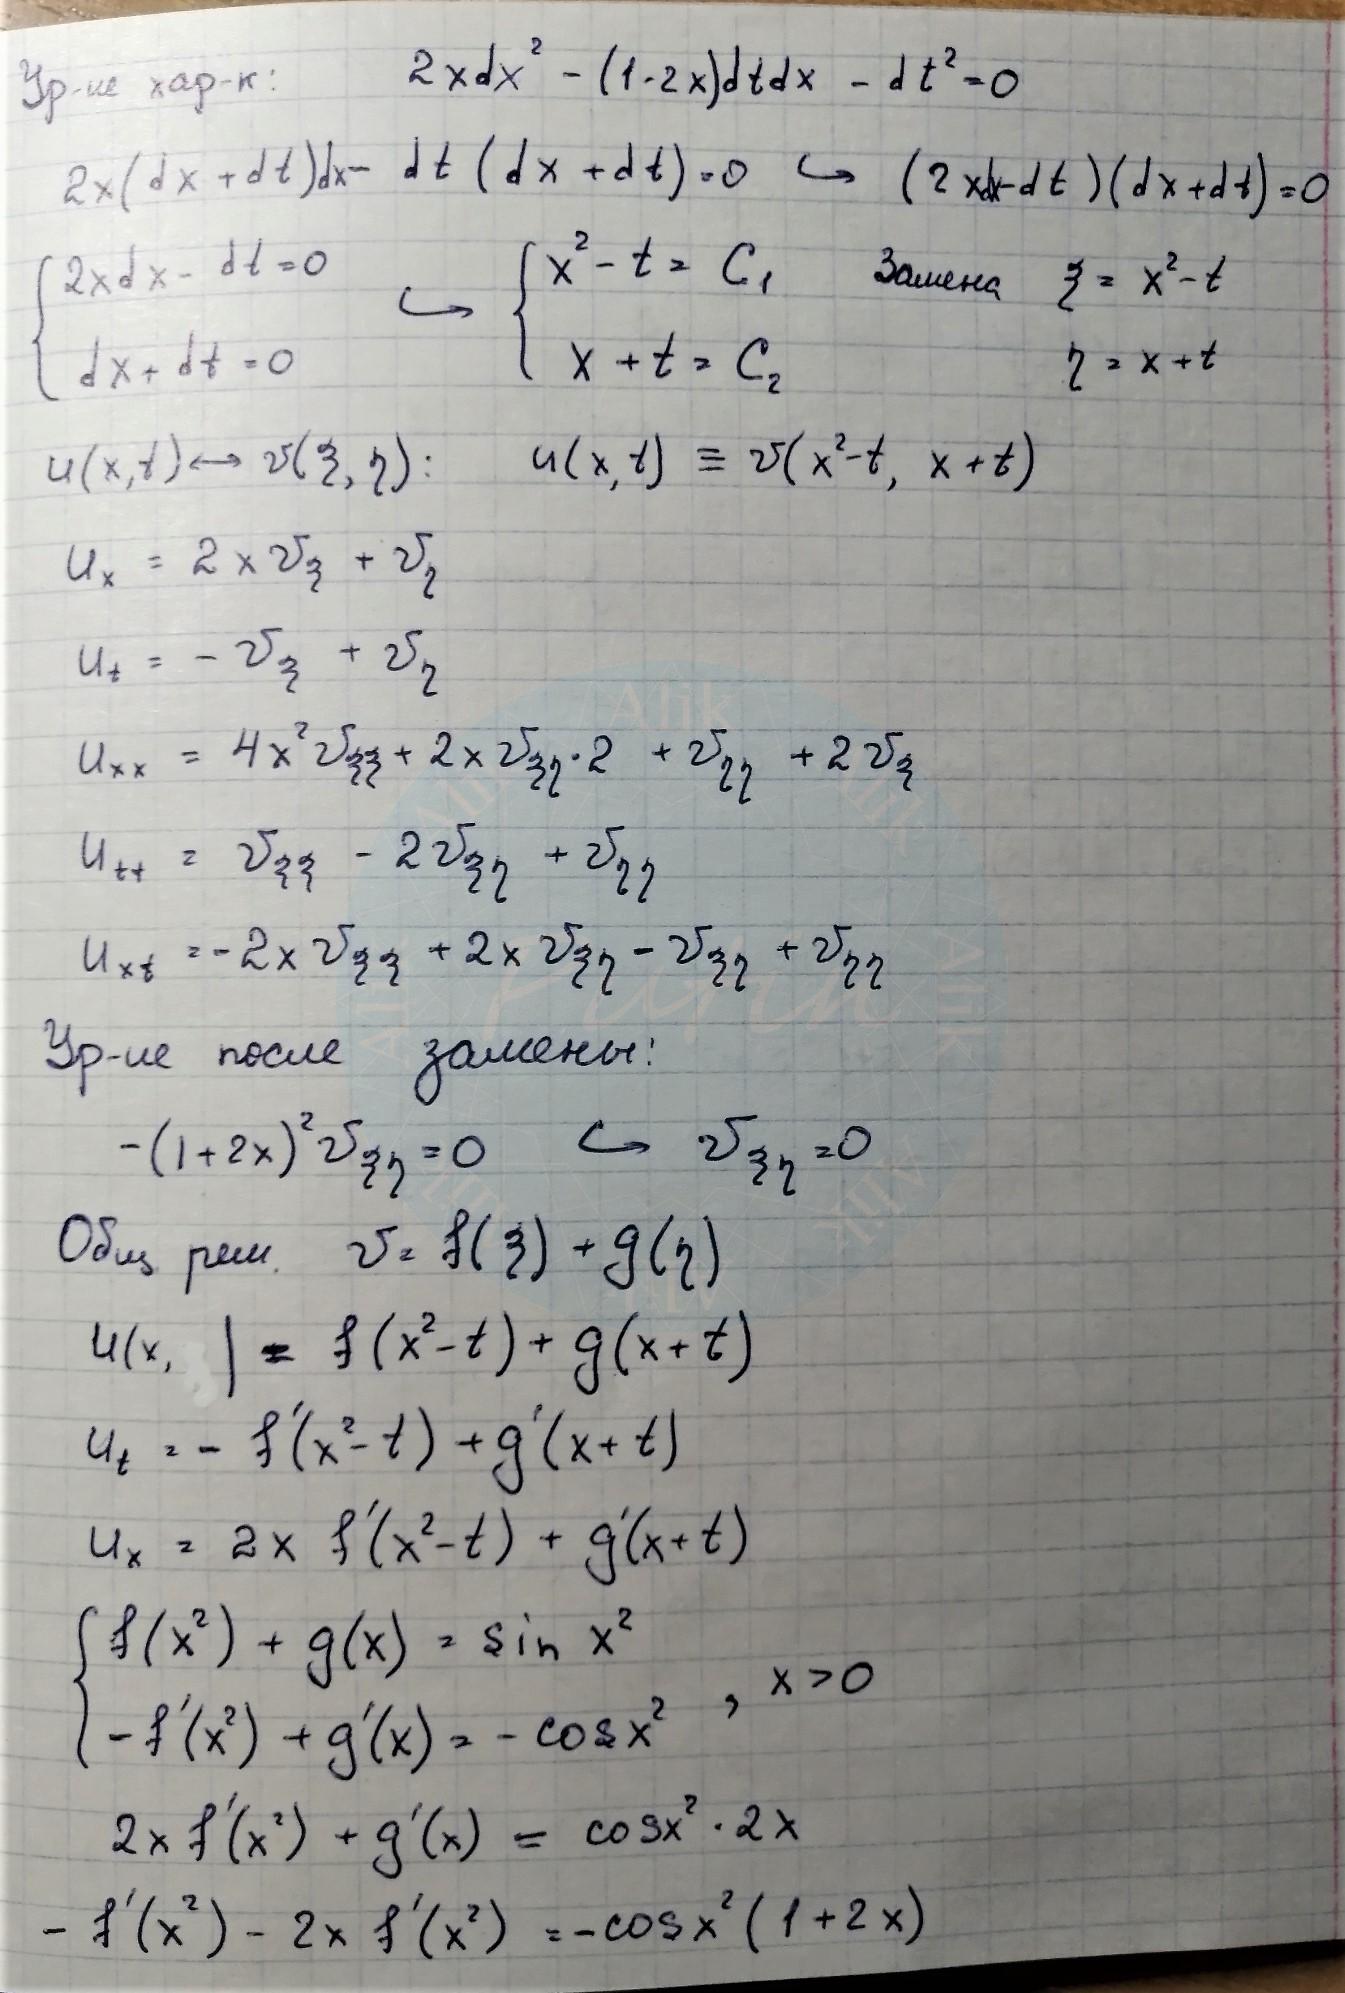 Ур-ие хар-к: 2xdx² - (1-2x)dtdx - dt² = 0
2x(dx + dt)dx - dt(dx + dt) = 0 ↪ (2xdx-dt)(dx+dt) = 0
{ 2xdx - dt = 0 ↪ { x² - t = C₁ Замена ξ = x² - t
dx + dt = 0 x + t = C₂ η = x + t
u(x,t) ↔ v(ξ, η): u(x,t) ≡ v(x²-t, x+t)
uₓ = 2x v_ξ + v_η
u_t = - v_ξ + v_η
u_xx = 4x² v_ξξ + 2x v_ξη · 2 + v_ηη + 2 v_ξ
u_tt = v_ξξ - 2 v_ξη + v_ηη
u_xt = -2x v_ξξ + 2x v_ξη - v_ξη + v_ηη
Ур-ие после замены:
-(1+2x)² v_ξη = 0 ↪ v_ξη = 0
Общ реш. v = f(ξ) + g(η)
u(x, ) = f(x²-t) + g(x+t)
u_t = - f'(x²-t) + g'(x+t)
u_x = 2x f'(x²-t) + g'(x+t)
{ f(x²) + g(x) = sin x²
-f'(x²) + g'(x) = - cos x² , x > 0
2x f'(x²) + g'(x) = cos x² · 2x
- f'(x²) - 2x f'(x²) = -cos x² (1+2x)
Alik
Alik
Alik
Alik
Alik
Alik